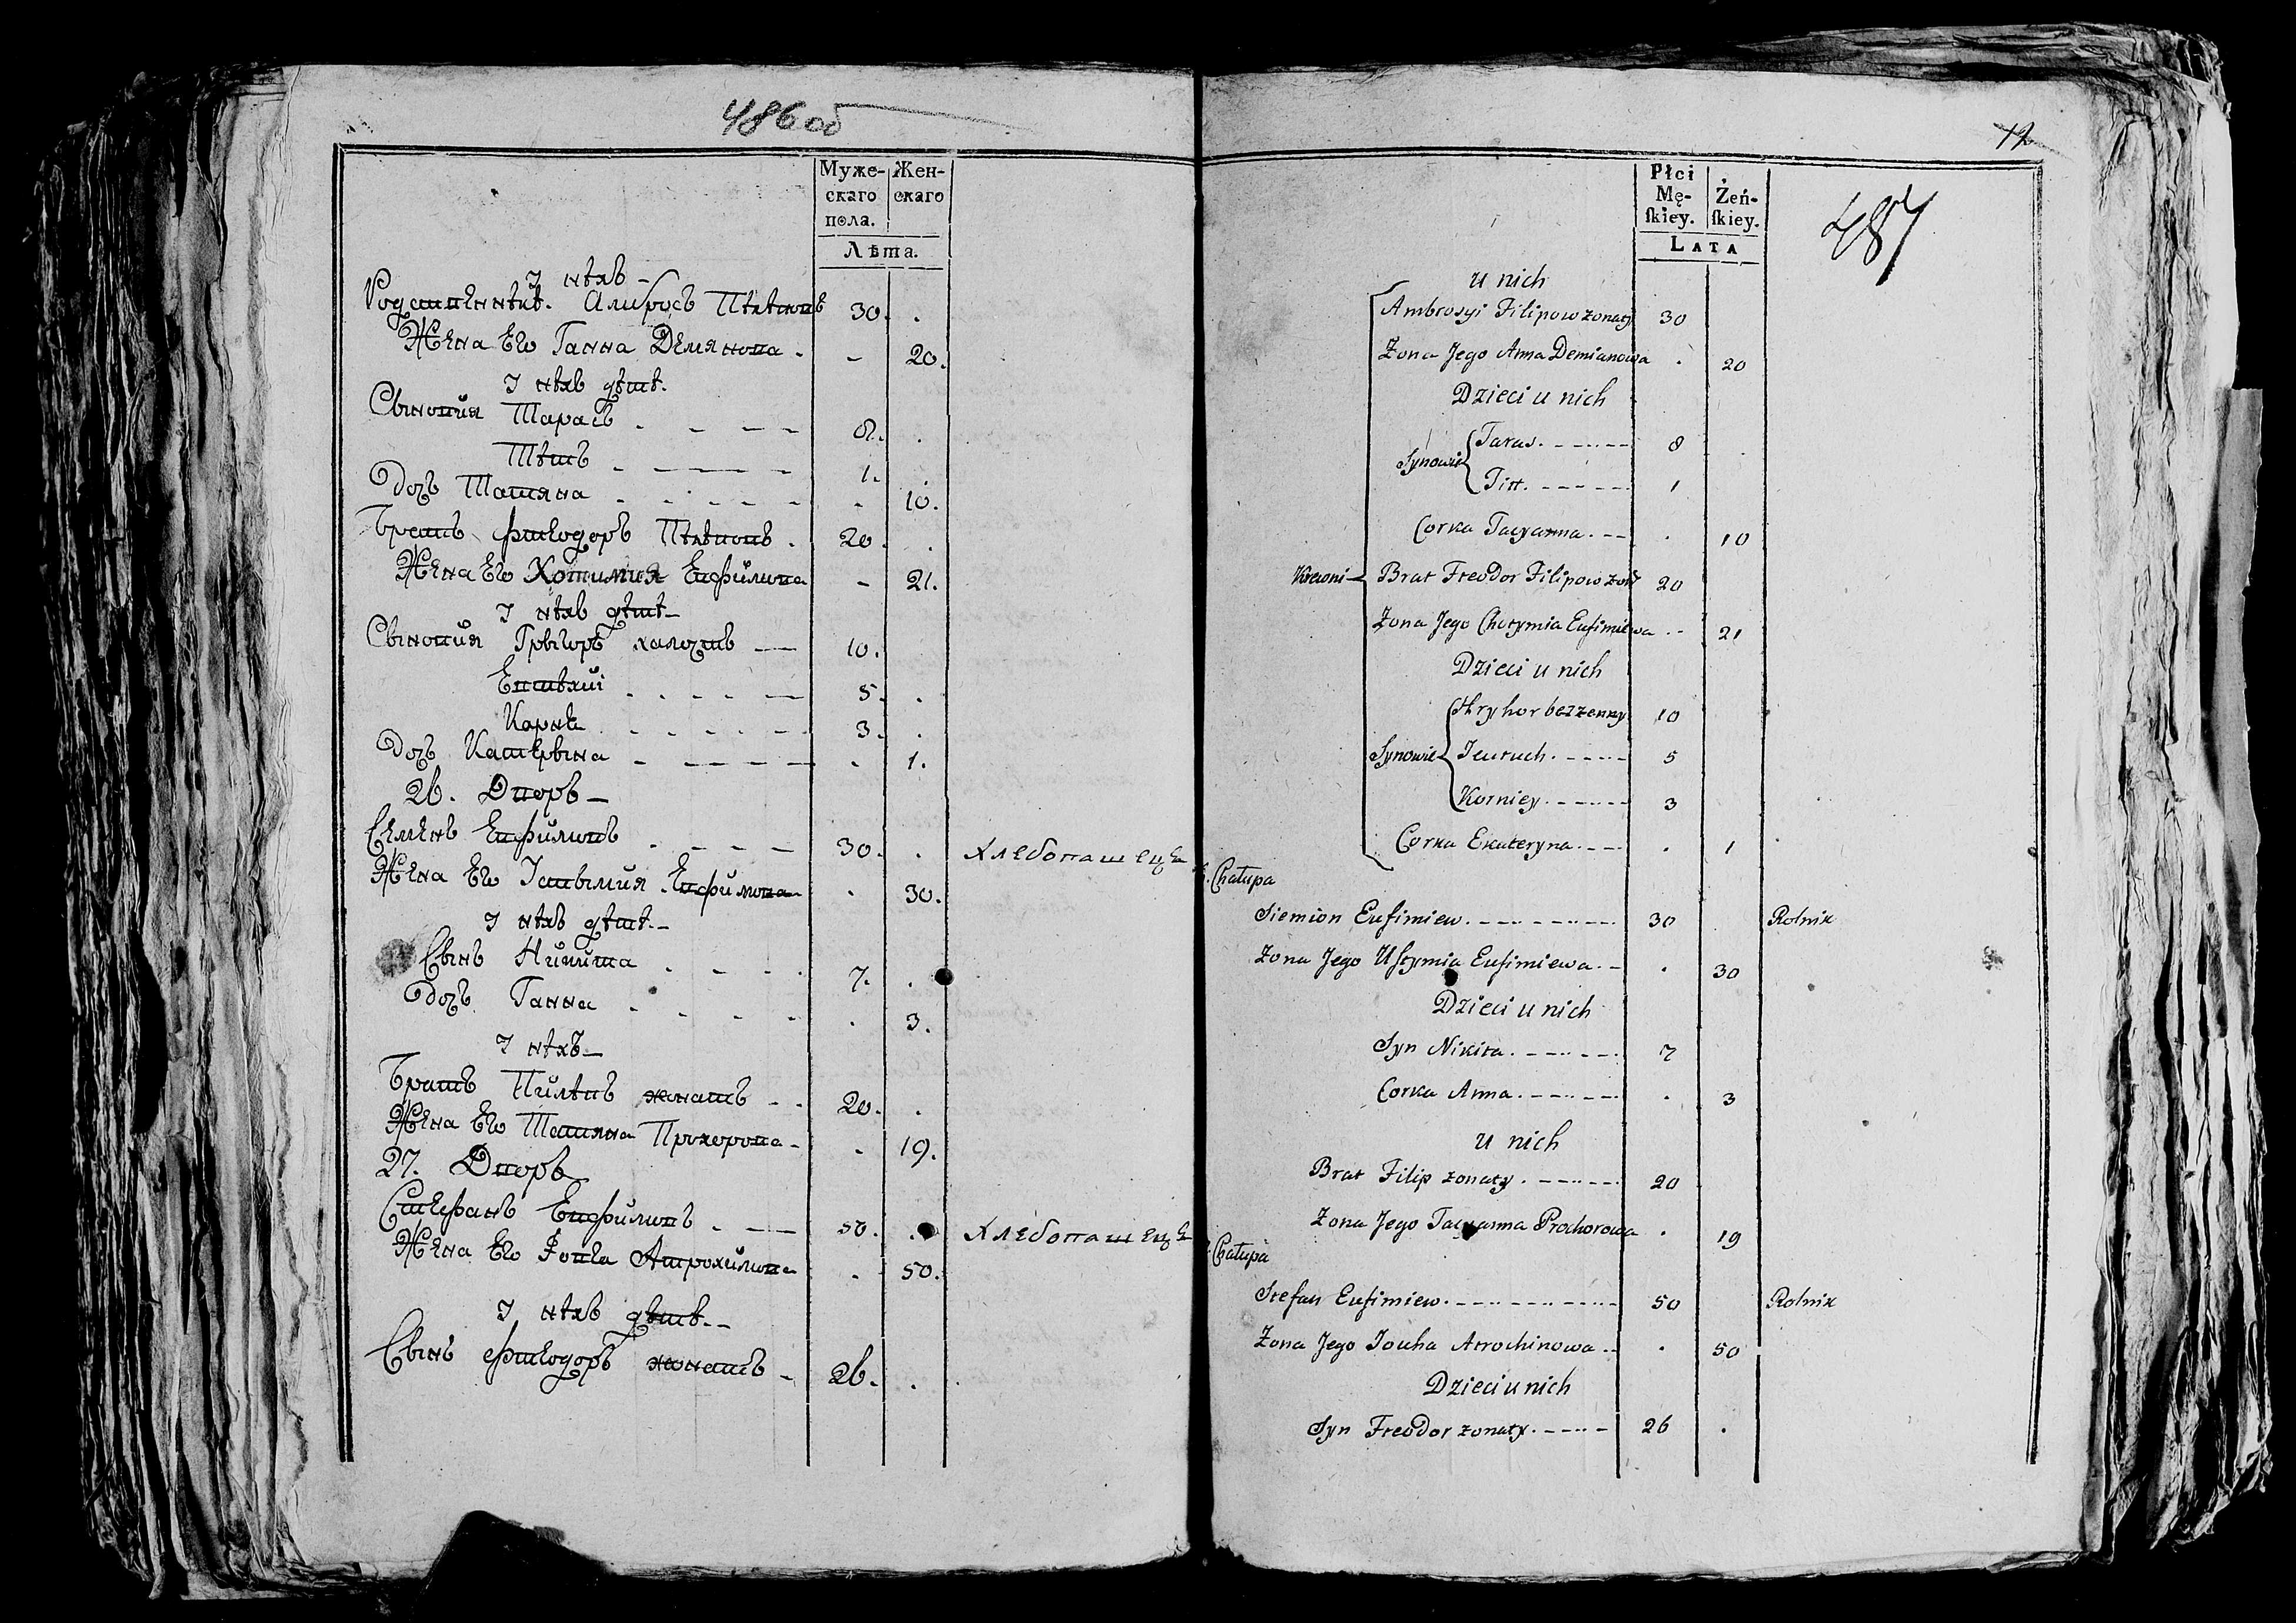 486 об
Муже-
скаго
пола.
Жен-
скаго
Лѣта.
I нѣхъ
Родственнѣкѣ. Амбросъ Пѣлѣповъ 30.
Жена Его Ганна Демянова - 20.
I нѣхъ дѣтѣ.
Сыновия Тарасъ 8.
Тѣтъ 1.
Дочъ Татяна 10.
Братъ Фтеодоръ Пѣлѣповъ 20.
Жена Его Хотимия Евфимова 21.
I нѣхъ дѣтѣ
Сыновия Грыгоръ халостъ 10.
Евтѣхий 5.
Карнѣ 3.
Дочъ Катерына 1.
26. Дворъ
Семенъ Евфимовъ 30. Хлебопашецъ
Жена Его Iстымия Евфимова 30.
I нѣхъ дѣтѣ.
Сынъ Никита 7.
Дочъ Ганна 3.
I нѣхъ
Братъ Пилѣпъ женатъ 20.
Жена Его Татяна Прохорова 19.
27. Дворъ
Стефанъ Евфимовъ 50. Хлебопашецъ
Жена Его Атрохимова 50.
I нѣхъ дѣтѣ.
Сынъ Фтеодоръ женатъ 26.
12
487
Płci
Mę-
ſkiey.
Żeń-
ſkiey.
LATA
u nich
Ambrosyi Filipow zonaty 30
Zona Jego Anna Demianowa 20
Dzieci u nich
Synowie Taras 8
Titt 1
Corka Tacyanna 10
Krewni Brat Fteodor Filipow 20
Zona Jego Chotymia Eufimiewa 21
Dzieci u nich
Hryhor bezzenny 10
Synowie Jeutuch 5
Korniey 3
Corka Ekateryna 1
Chałupa
Siemion Eufimiew 30 Rolnik
Zona Jego Uſtymia Eufimiewa 30
Dzieci u nich
Syn Nikita 7
Corka Anna 3
u nich
Brat Filip zonaty 20
Zona Jego Tacyanna Prochorowa 19
Chałupa
Stefan Eufimiew 50 Rolnik
Zona Jego Jouha Atrochimowa 50
Dzieci u nich
Syn Fteodor zonaty 26